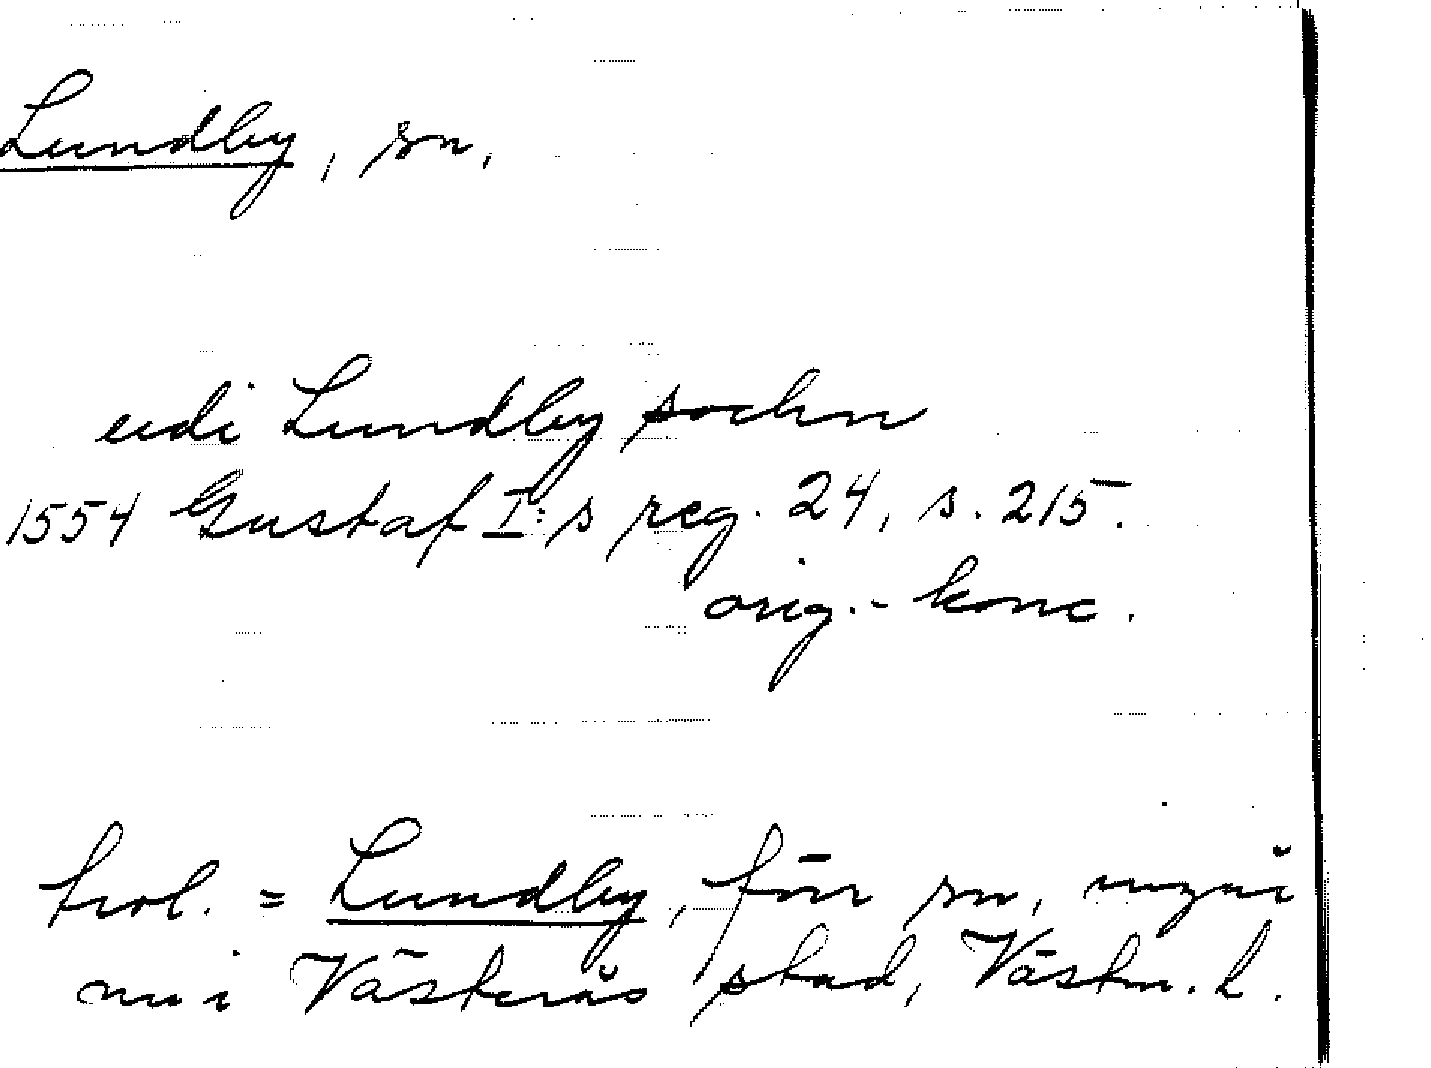 Lundby, sn,
udi Lundby sochn
1554 Gustaf I:s reg. 24, s. 215.
orig.-konc.
trol. = Lundby, förr sn, ingår
nu i Västerås stad, Västm. l.